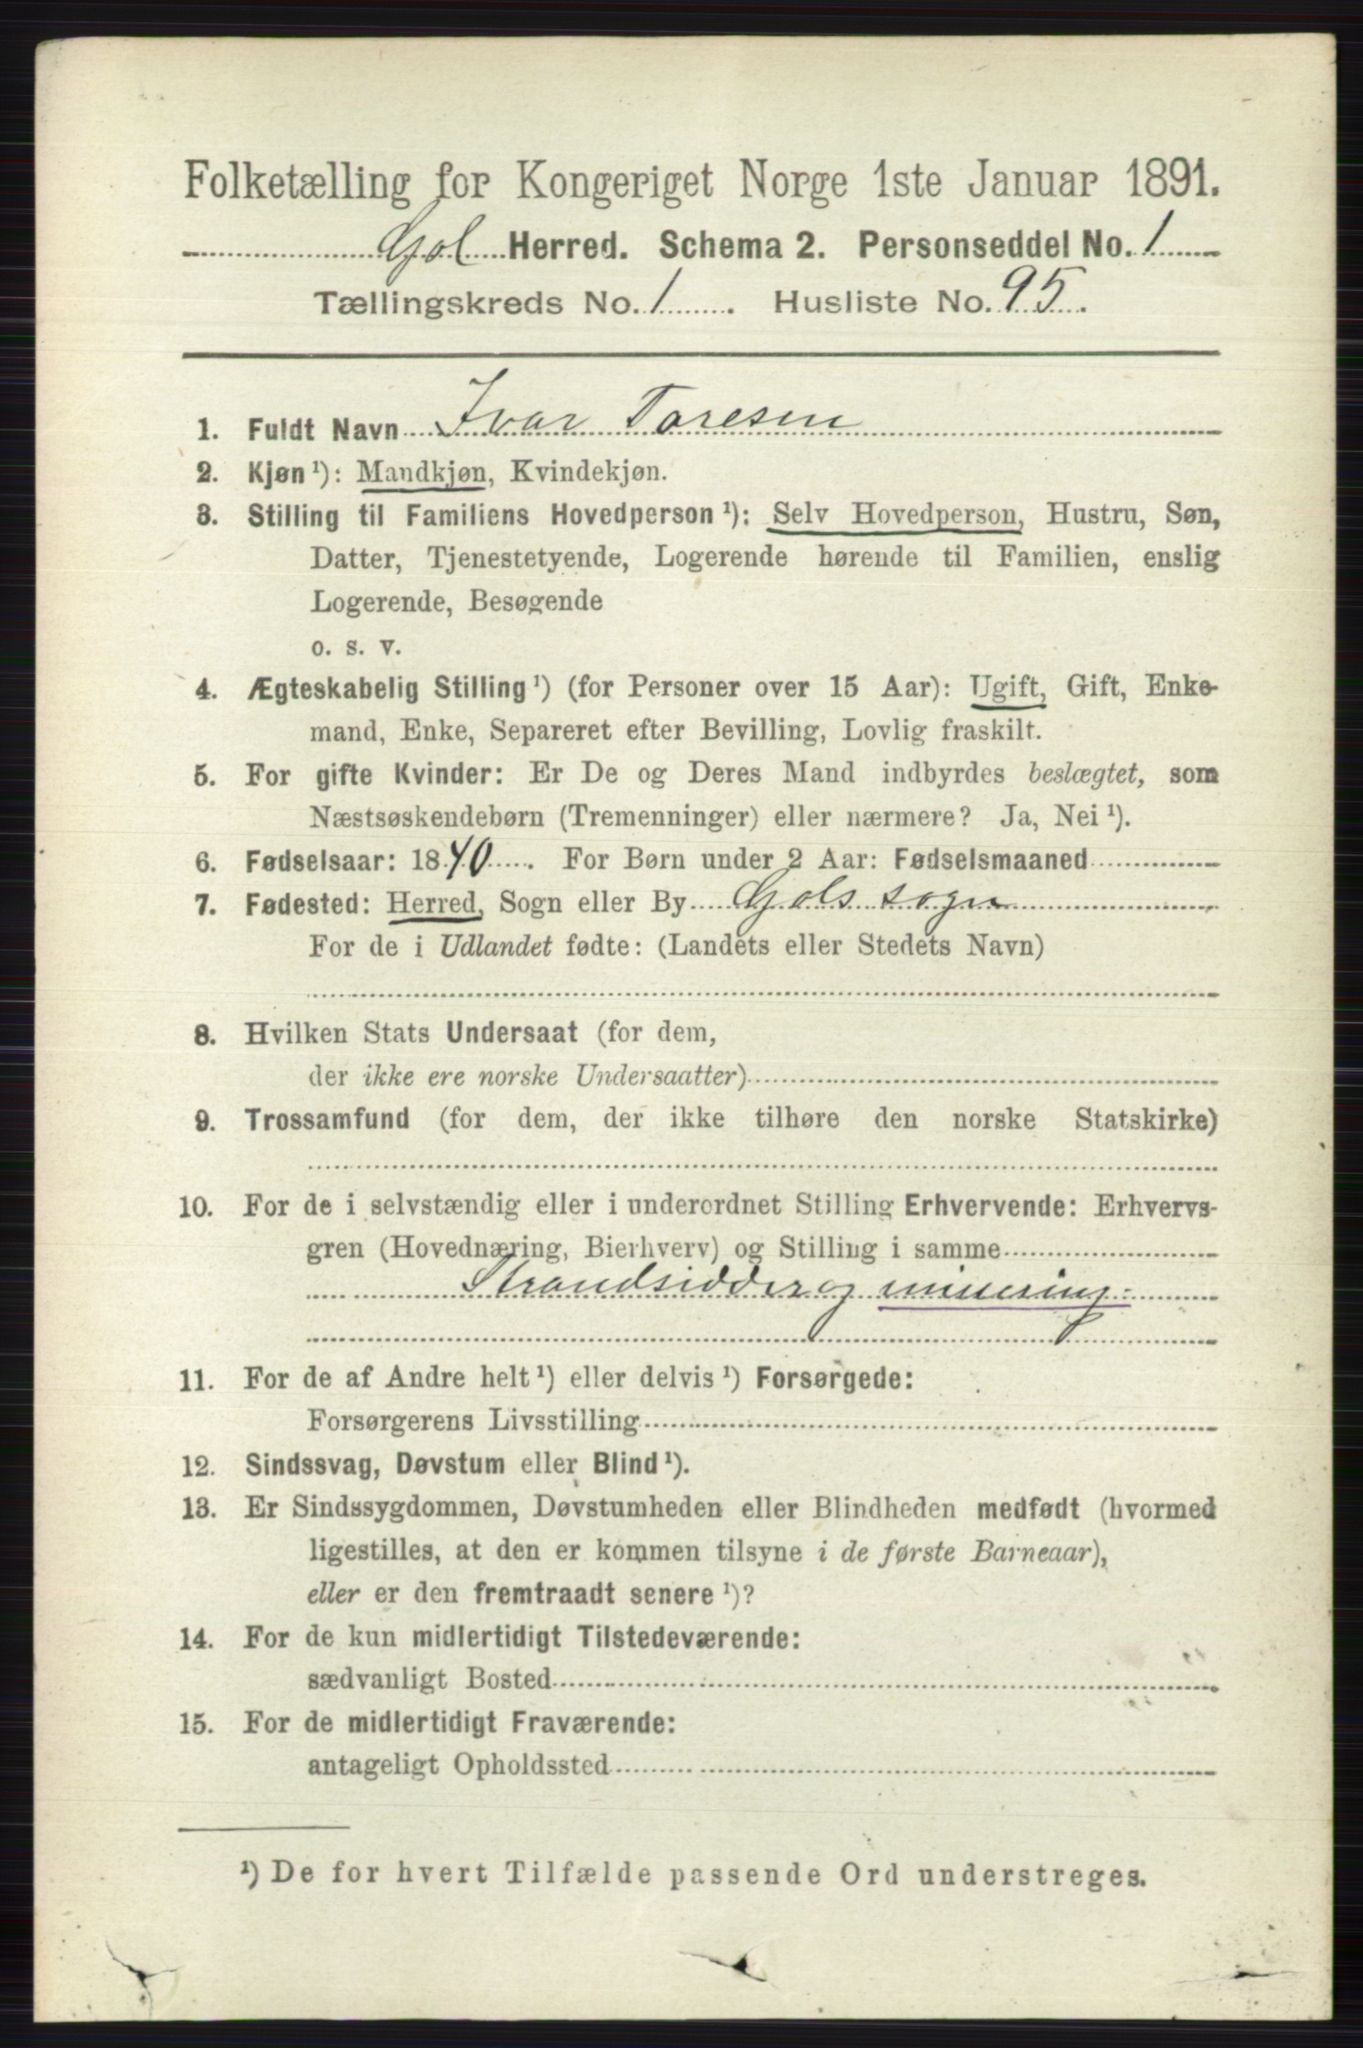 Folketælling for Kongeriget Norge 1ste Januar 1891.
Gol Herred. Schema 2. Personseddel No. 1
Tællingskreds No. 1. Husliste No. 95.
1. Fuldt Navn Ivar Toresen
2. Kjøn ¹): Mandkjøn, Kvindekjøn.
3. Stilling til Familiens Hovedperson ¹): Selv Hovedperson, Hustru, Søn,
Datter, Tjenestetyende, Logerende hørende til Familien, enslig
Logerende, Besøgende
o. s. v.
4. Ægteskabelig Stilling ¹) (for Personer over 15 Aar): Ugift, Gift, Enke-
mand, Enke, Separeret efter Bevilling, Lovlig fraskilt.
5. For gifte Kvinder: Er De og Deres Mand indbyrdes beslægtet, som
Næstsøskendebørn (Tremenninger) eller nærmere? Ja, Nei ¹).
6. Fødselsaar: 1840. For Børn under 2 Aar: Fødselsmaaned
7. Fødested: Herred, Sogn eller By Gols sogn
For de i Udlandet fødte: (Landets eller Stedets Navn)
8. Hvilken Stats Undersaat (for dem,
der ikke ere norske Undersaatter)
9. Trossamfund (for dem, der ikke tilhøre den norske Statskirke)
10. For de i selvstændig eller i underordnet Stilling Erhvervende: Erhvervs-
gren (Hovednæring, Bierhverv) og Stilling i samme
Strandsidder og minering
11. For de af Andre helt ¹) eller delvis ¹) Forsørgede:
Forsørgerens Livsstilling
12. Sindssvag, Døvstum eller Blind ¹).
13. Er Sindssygdommen, Døvstumheden eller Blindheden medfødt (hvormed
ligestilles, at den er kommen tilsyne i de første Barneaar),
eller er den fremtraadt senere ¹)?
14. For de kun midlertidigt Tilstedeværende:
sædvanligt Bosted
15. For de midlertidigt Fraværende:
antageligt Opholdssted
¹) De for hvert Tilfælde passende Ord understreges.